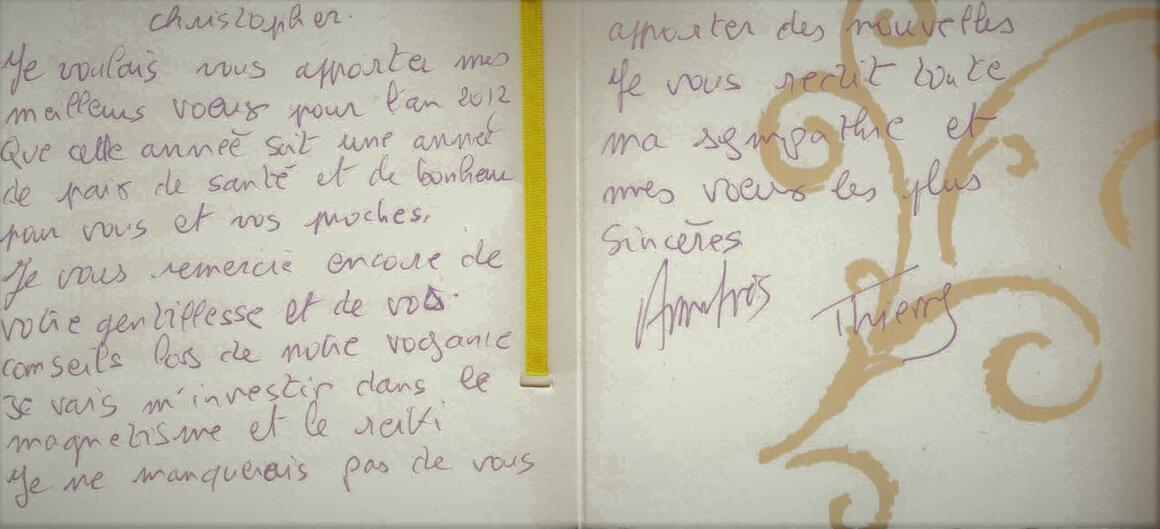 christopher.
Je voulais vous apporter mes
meilleurs voeux pour l'an 2012
Que cette année soit une année
de paix de santé et de bonheur
pour vous et vos proches.
Je vous remercie encore de
votre gentillesse et de vos
conseils lors de notre voyance
Je vais m'investir dans le
magnetisme et le reiki
Je ne manquerais pas de vous
apporter des nouvelles
Je vous redit toute
ma sympathie et
mes voeux les plus
sincères
Thierry